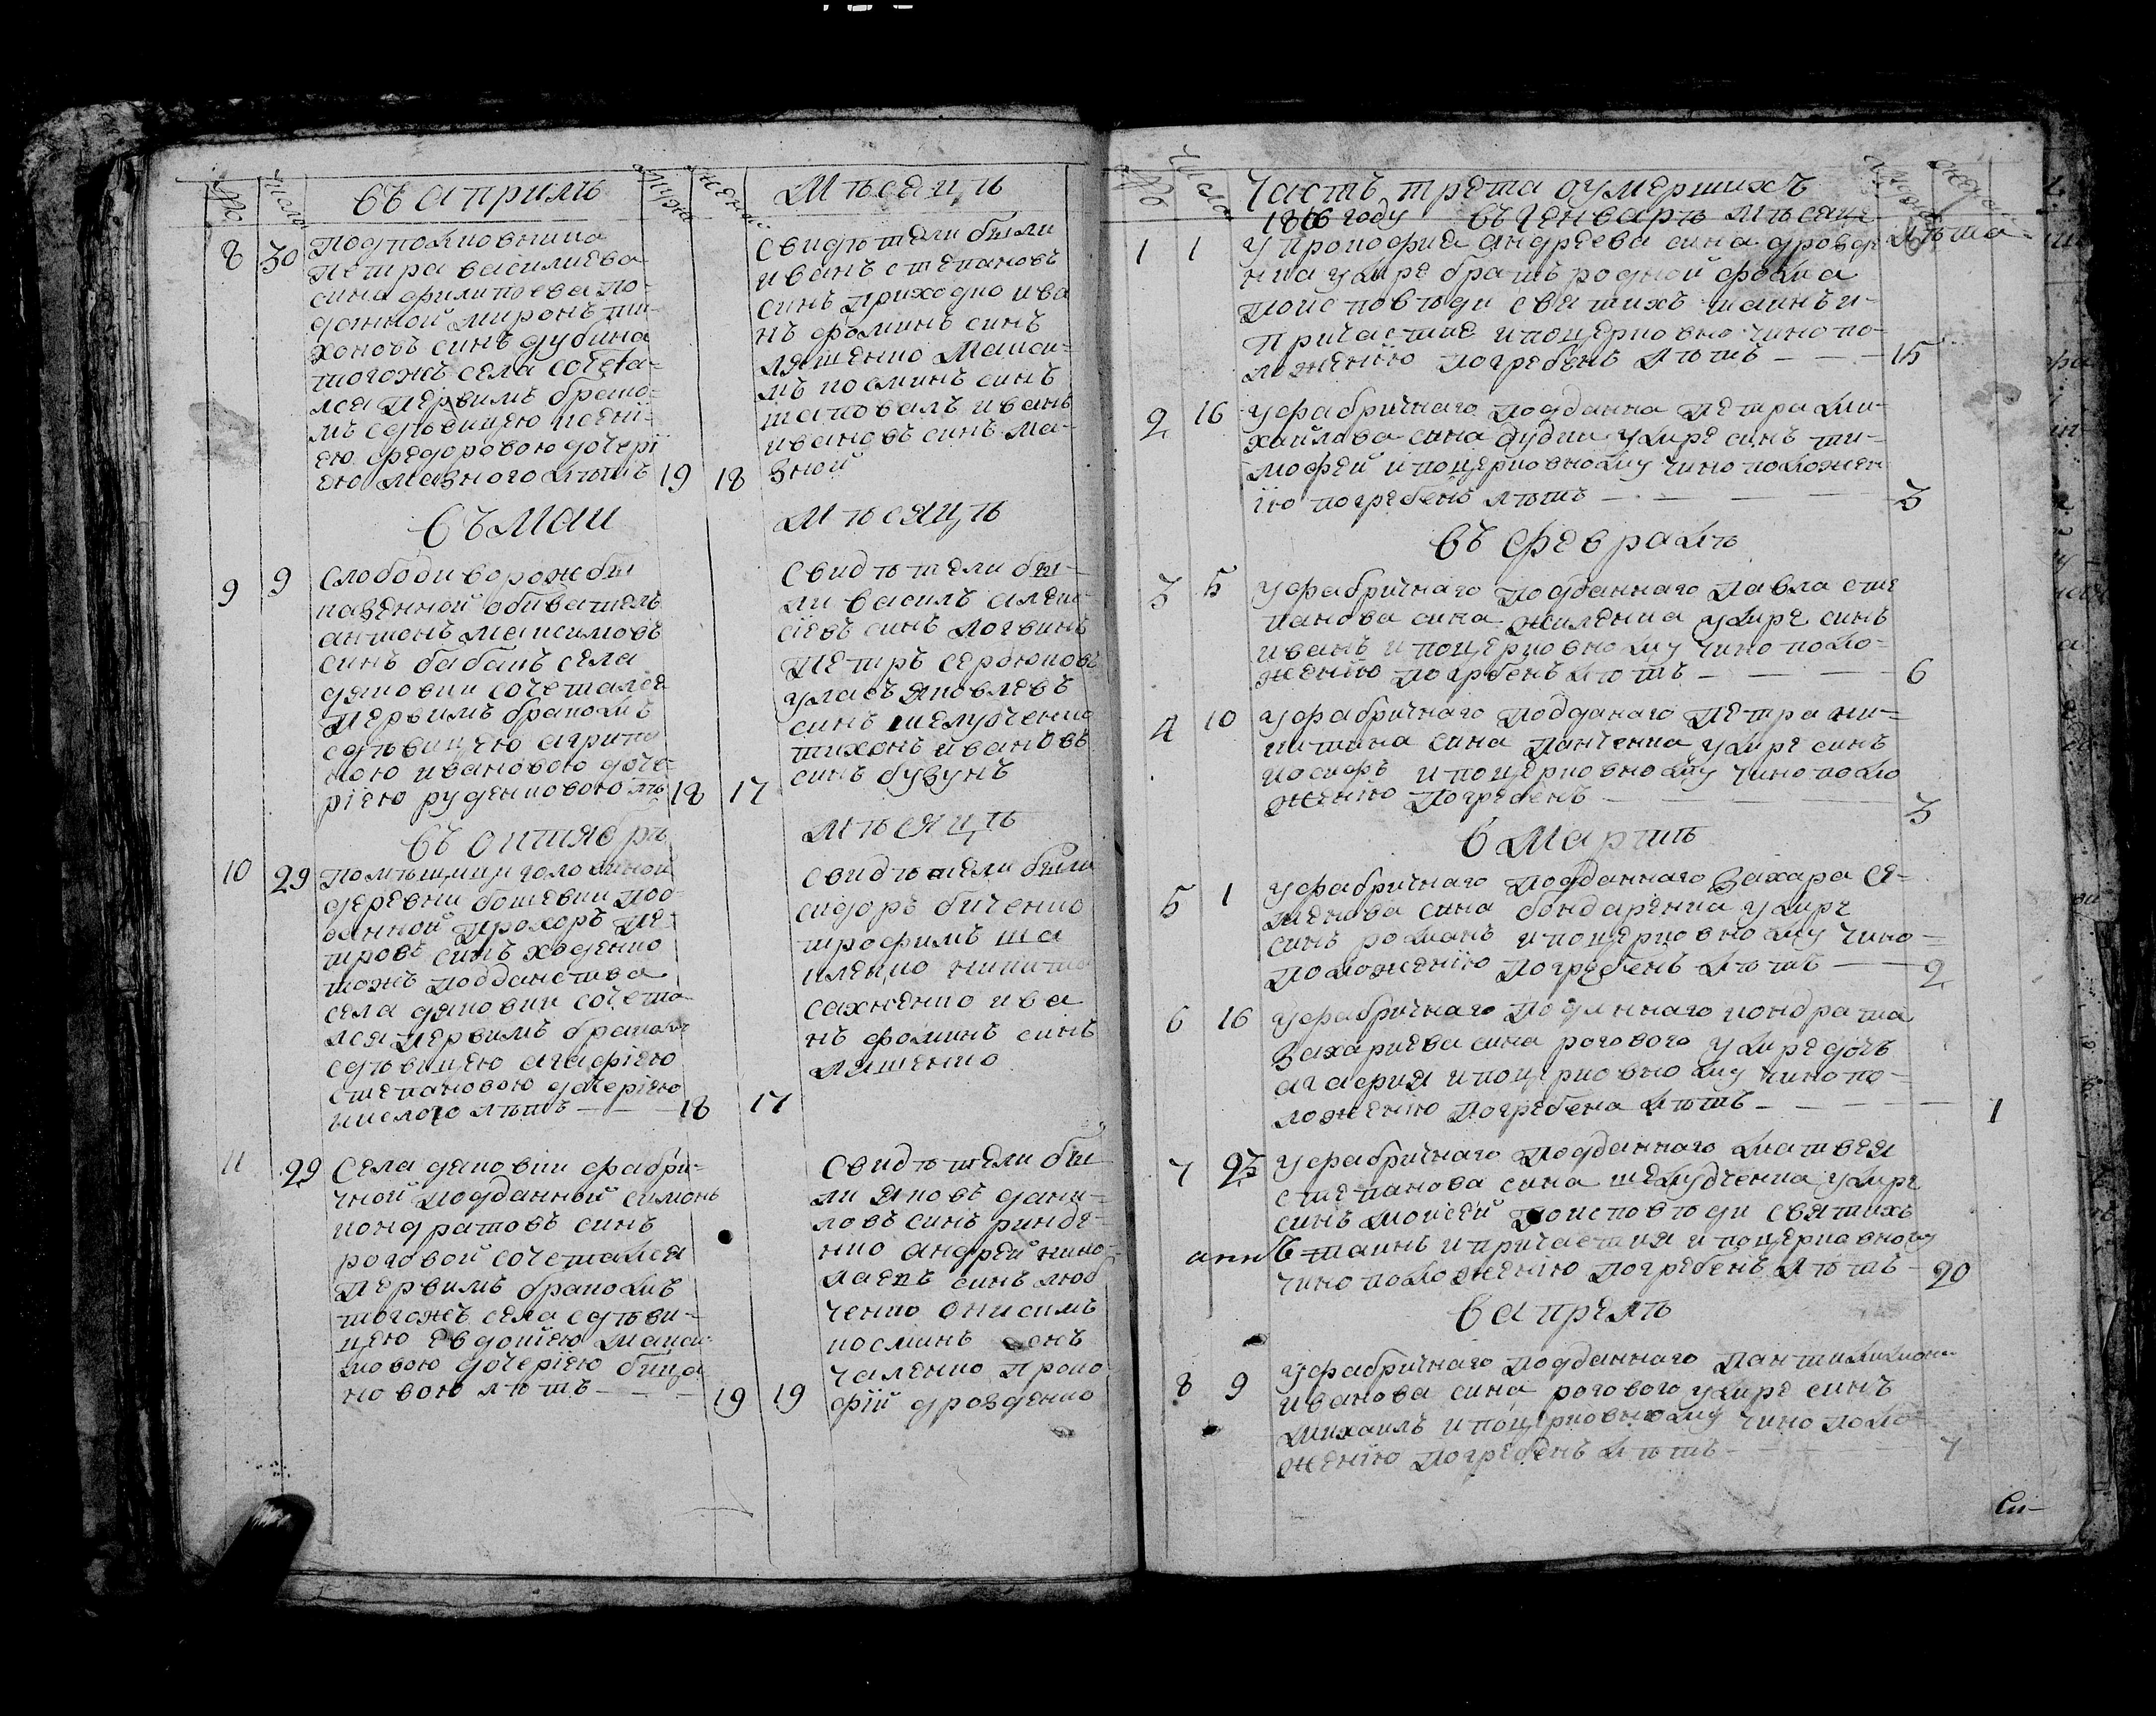 № число въ априлѣ мужа жени Мѣсяцѣ
8 30 Подполковника
Петра василиева
сина филипьева по-
данной миронъ ти-
хоновъ синъ дубина
тогожъ села сочета-
лся первимъ брако-
мъ сдѣвицею ксені-
ею федоровою дочері
ею мазного лѣтъ 19 18
Свидѣтели были
иванъ степановъ
синъ приходко ива
нъ фоминъ синъ
ляшенко Макси-
мъ косминъ синъ
шаповалъ иванъ
ивановъ синъ ма-
зной
въ маи Мѣсяцѣ
9 9 Слободи ворожби
казенной обиватель
антонъ максимовъ
синъ бабакъ села
дяковки сочетался
первимъ бракомъ
сдѣвицею агрипи
ною ивановою доче-
рiею руденковою лѣ 18 17
Свидѣтели бы-
ли василъ алекс-
сіевъ синъ логвинъ
Петръ сердюковъ
уласъ яковлевъ
синъ шелудченко
тихонъ ивановъ
синъ бузунъ
въ октябрѣ мѣсяцѣ
10 29 Помѣщици головиной
деревни бошевки под-
данной прохоръ пе-
тровъ синъ ходенко
тожъ подданства
села дяковки сочета-
лся первимъ бракомъ
сдѣвицею агафiею
степановою дочерiею
кислого лѣтъ - - - 18 17
Свидѣтели били
сидоръ биченко
трофимъ ша
никита
сахненко ива
нъ фоминъ синъ
ляшенко
11 29 Села дяковки фабри-
чной подданной симонъ
кондратовъ синъ
роговой сочетался
первимъ бракомъ
тогожъ села сдѣви-
цею евдокiею макси
мовою дочерiею бица
новою лѣтъ - - - 19 19
Свидѣтели би
ли яковъ дани-
ловъ синъ ринде-
нко андрей нико-
лаевъ синъ люб
ченко онисимъ
косминъ синъ
чаленко проко
фій дрозденко
№ Число Часть трета оумершихъ
1816 году въ генварѣ мѣсяце лѣта
1 1 У прокофия андреева сина дрозде
нка умре братъ родной фома
поисповѣди святихъ таинъ и-
причастие ипоцерковно чинопо-
ложенiю погребенъ лѣтъ - - - 15
2 16 У фабричнаго подданна Петра ми-
хаилова сина дудки умре синъ ти-
мофей ипоцерковному чиноположен
iю погребенъ лѣтъ - - - - 3
въ февралѣ
3 5 У фабричнаго подданнаго Павла сте
панова сина жиленка умре синъ
иванъ ипоцерковному чинополо-
женiю погребенъ лѣтъ - - - 6
4 10 У фабричнаго подданаго Петра ни-
китина сина панченка умре синъ
иосифъ ипоцерковному чинополо
женiю погребенъ - - - - 3
в Мартѣ
5 1 У фабричнаго подданнаго Захара се-
менова сина бондаренка умре
синъ романъ ипоцерковному чино-
положенiю погребенъ лѣтъ - - 2
6 16 У фабричнаго кондрата
Захариева сина рогового умре дочъ
агафия ипоцерковному чинопо-
ложенiю погребена лѣтъ - - - - 1
7 23 У фабричнаго подданнаго матвея
степанова сина шелудченка умре
синъ моисей поисповѣди святихъ
таинъ ипричастия ипоцерковному
чиноположенiю погребенъ лѣтъ - 20
в апрелѣ
8 9 У фабричнаго подданнаго
иванова сина рогового умре синъ
михаилъ ипоцерковному чинополо-
женiю погребенъ лѣтъ - - - 7
Си-